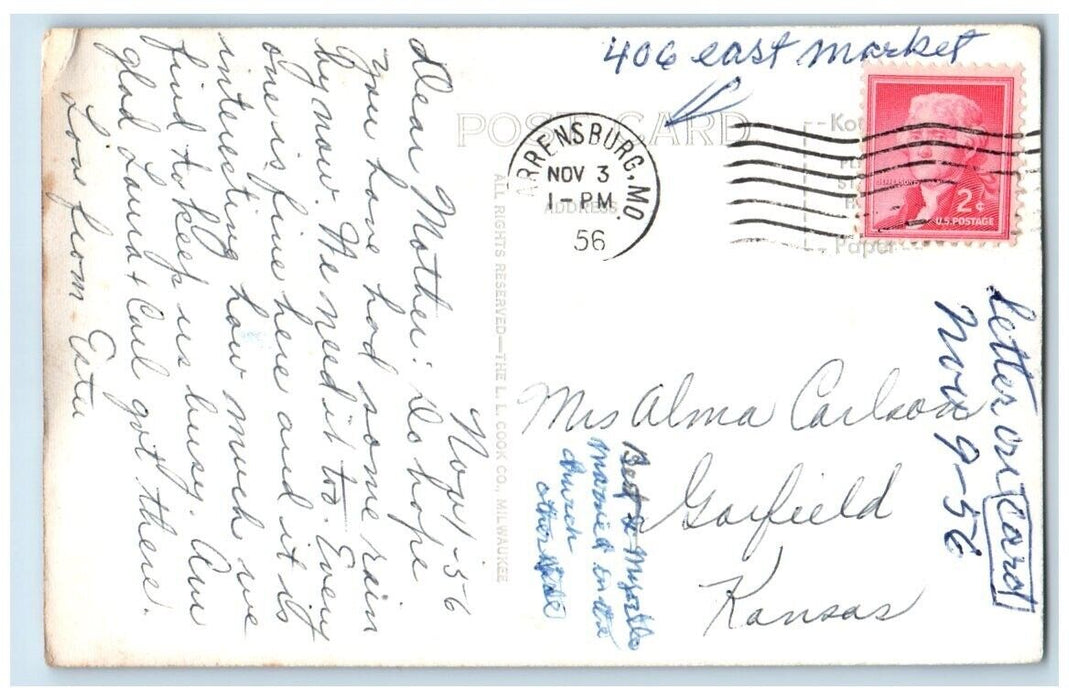 406 east market
POST CARD
WARRENSBURG, MO
NOV 3
1-PM
56
ADDRESS
Paper
JEFFERSON
2¢
U.S. POSTAGE
Nov 1 - 56
Dear Mother: Do hope
you have had some rain
by now. We need it too. Every
one is fine here and it is
interesting how much we
find to keep us busy. Am
glad Laura + Carl got there.
from
ALL RIGHTS RESERVED—THE L. L. COOK CO., MILWAUKEE
Mrs Alma Carlson
Garfield
Kansas
married in the
church
other side
letter on card
Nov 9-56